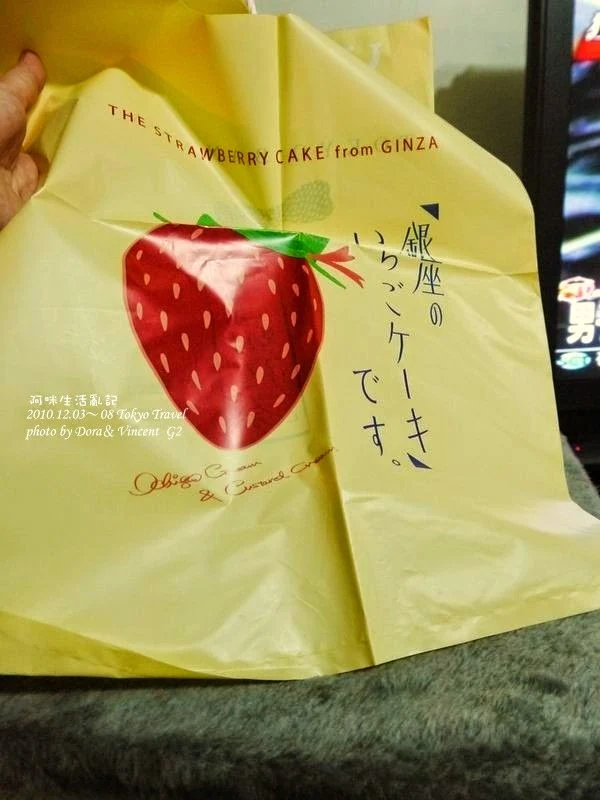 THE STRAWBERRY CAKE from GINZA
銀座の
いちごケーキ
です。
Whip Cream
& Custard Cream
阿味生活亂記
2010.12.03~08 Tokyo Travel
photo by Dora& Vincent G2
男